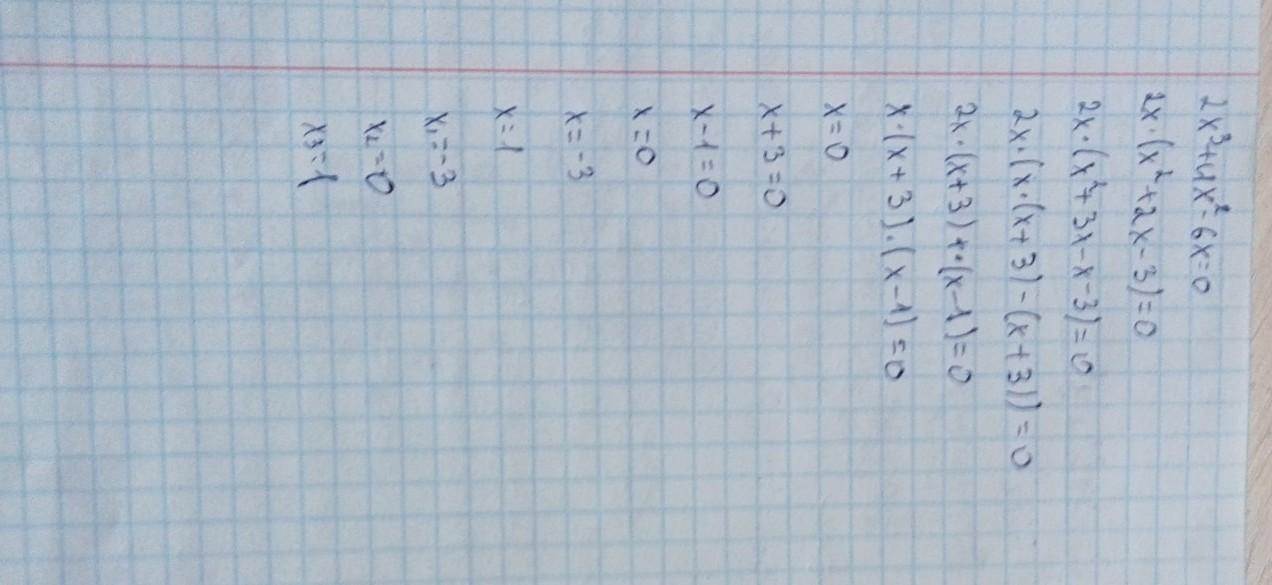 2x³+4x²-6x=0
2x·(x²+2x-3)=0
2x·(x²+3x-x-3)=0
2x·(x·(x+3)-(x+3))=0
2x·(x+3)+·(x-1)=0
x·(x+3)·(x-1)=0
x=0
x+3=0
x-1=0
x=0
x=-3
x=1
x₁=-3
x₂=0
x₃=1